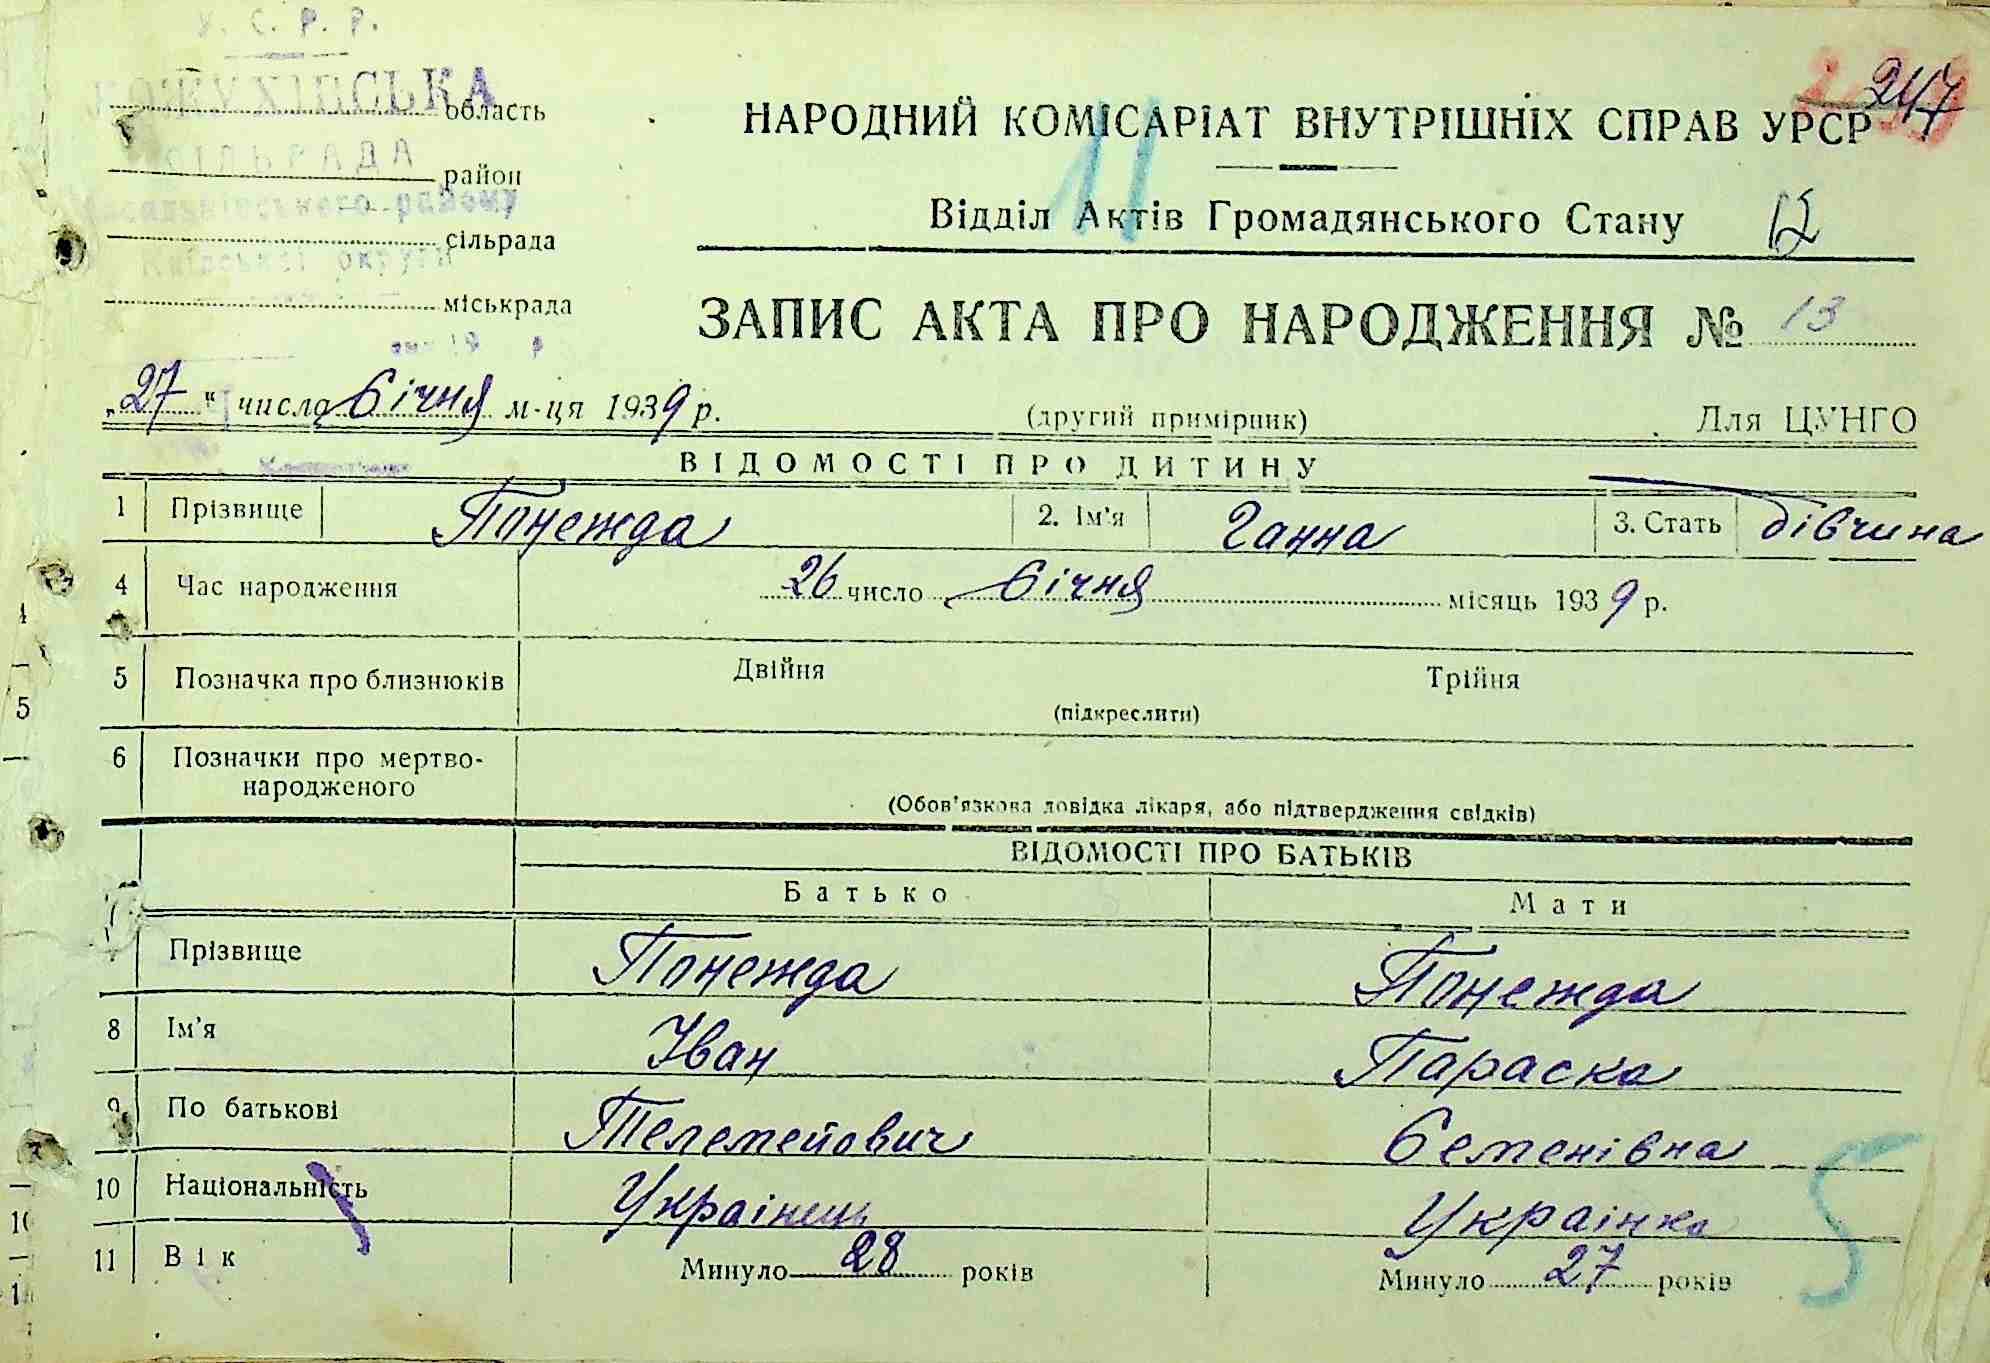 У. С. Р. Р.
КОЖУХІВСЬКА
область
СІЛЬРАДА
район
району
сільрада
Київської округи
міськрада
247
НАРОДНИЙ КОМІСАРІАТ ВНУТРІШНІХ СПРАВ УРСР
11
Відділ Актів Громадянського Стану 12
ЗАПИС АКТА ПРО НАРОДЖЕННЯ № 13
„27“ числа січня м-ця 1939 р. (другий примірник) Для ЦУНГО
ВІДОМОСТІ ПРО ДИТИНУ
1 Прізвище Понежда 2. Ім'я Ганна 3. Стать дівчина
4 Час народження 26 число січня місяць 1939 р.
5 Позначка про близнюків Двійня Трійня
(підкреслити)
6 Позначки про мертво-
народженого
(Обов'язкова довідка лікаря, або підтвердження свідків)
ВІДОМОСТІ ПРО БАТЬКІВ
Батько Мати
7 Прізвище Понежда Понежда
8 Ім'я Іван Параска
9 По батькові Телемейович Семенівна
10 Національність Українець Українка
11 Вік Минуло 28 років Минуло 27 років
5